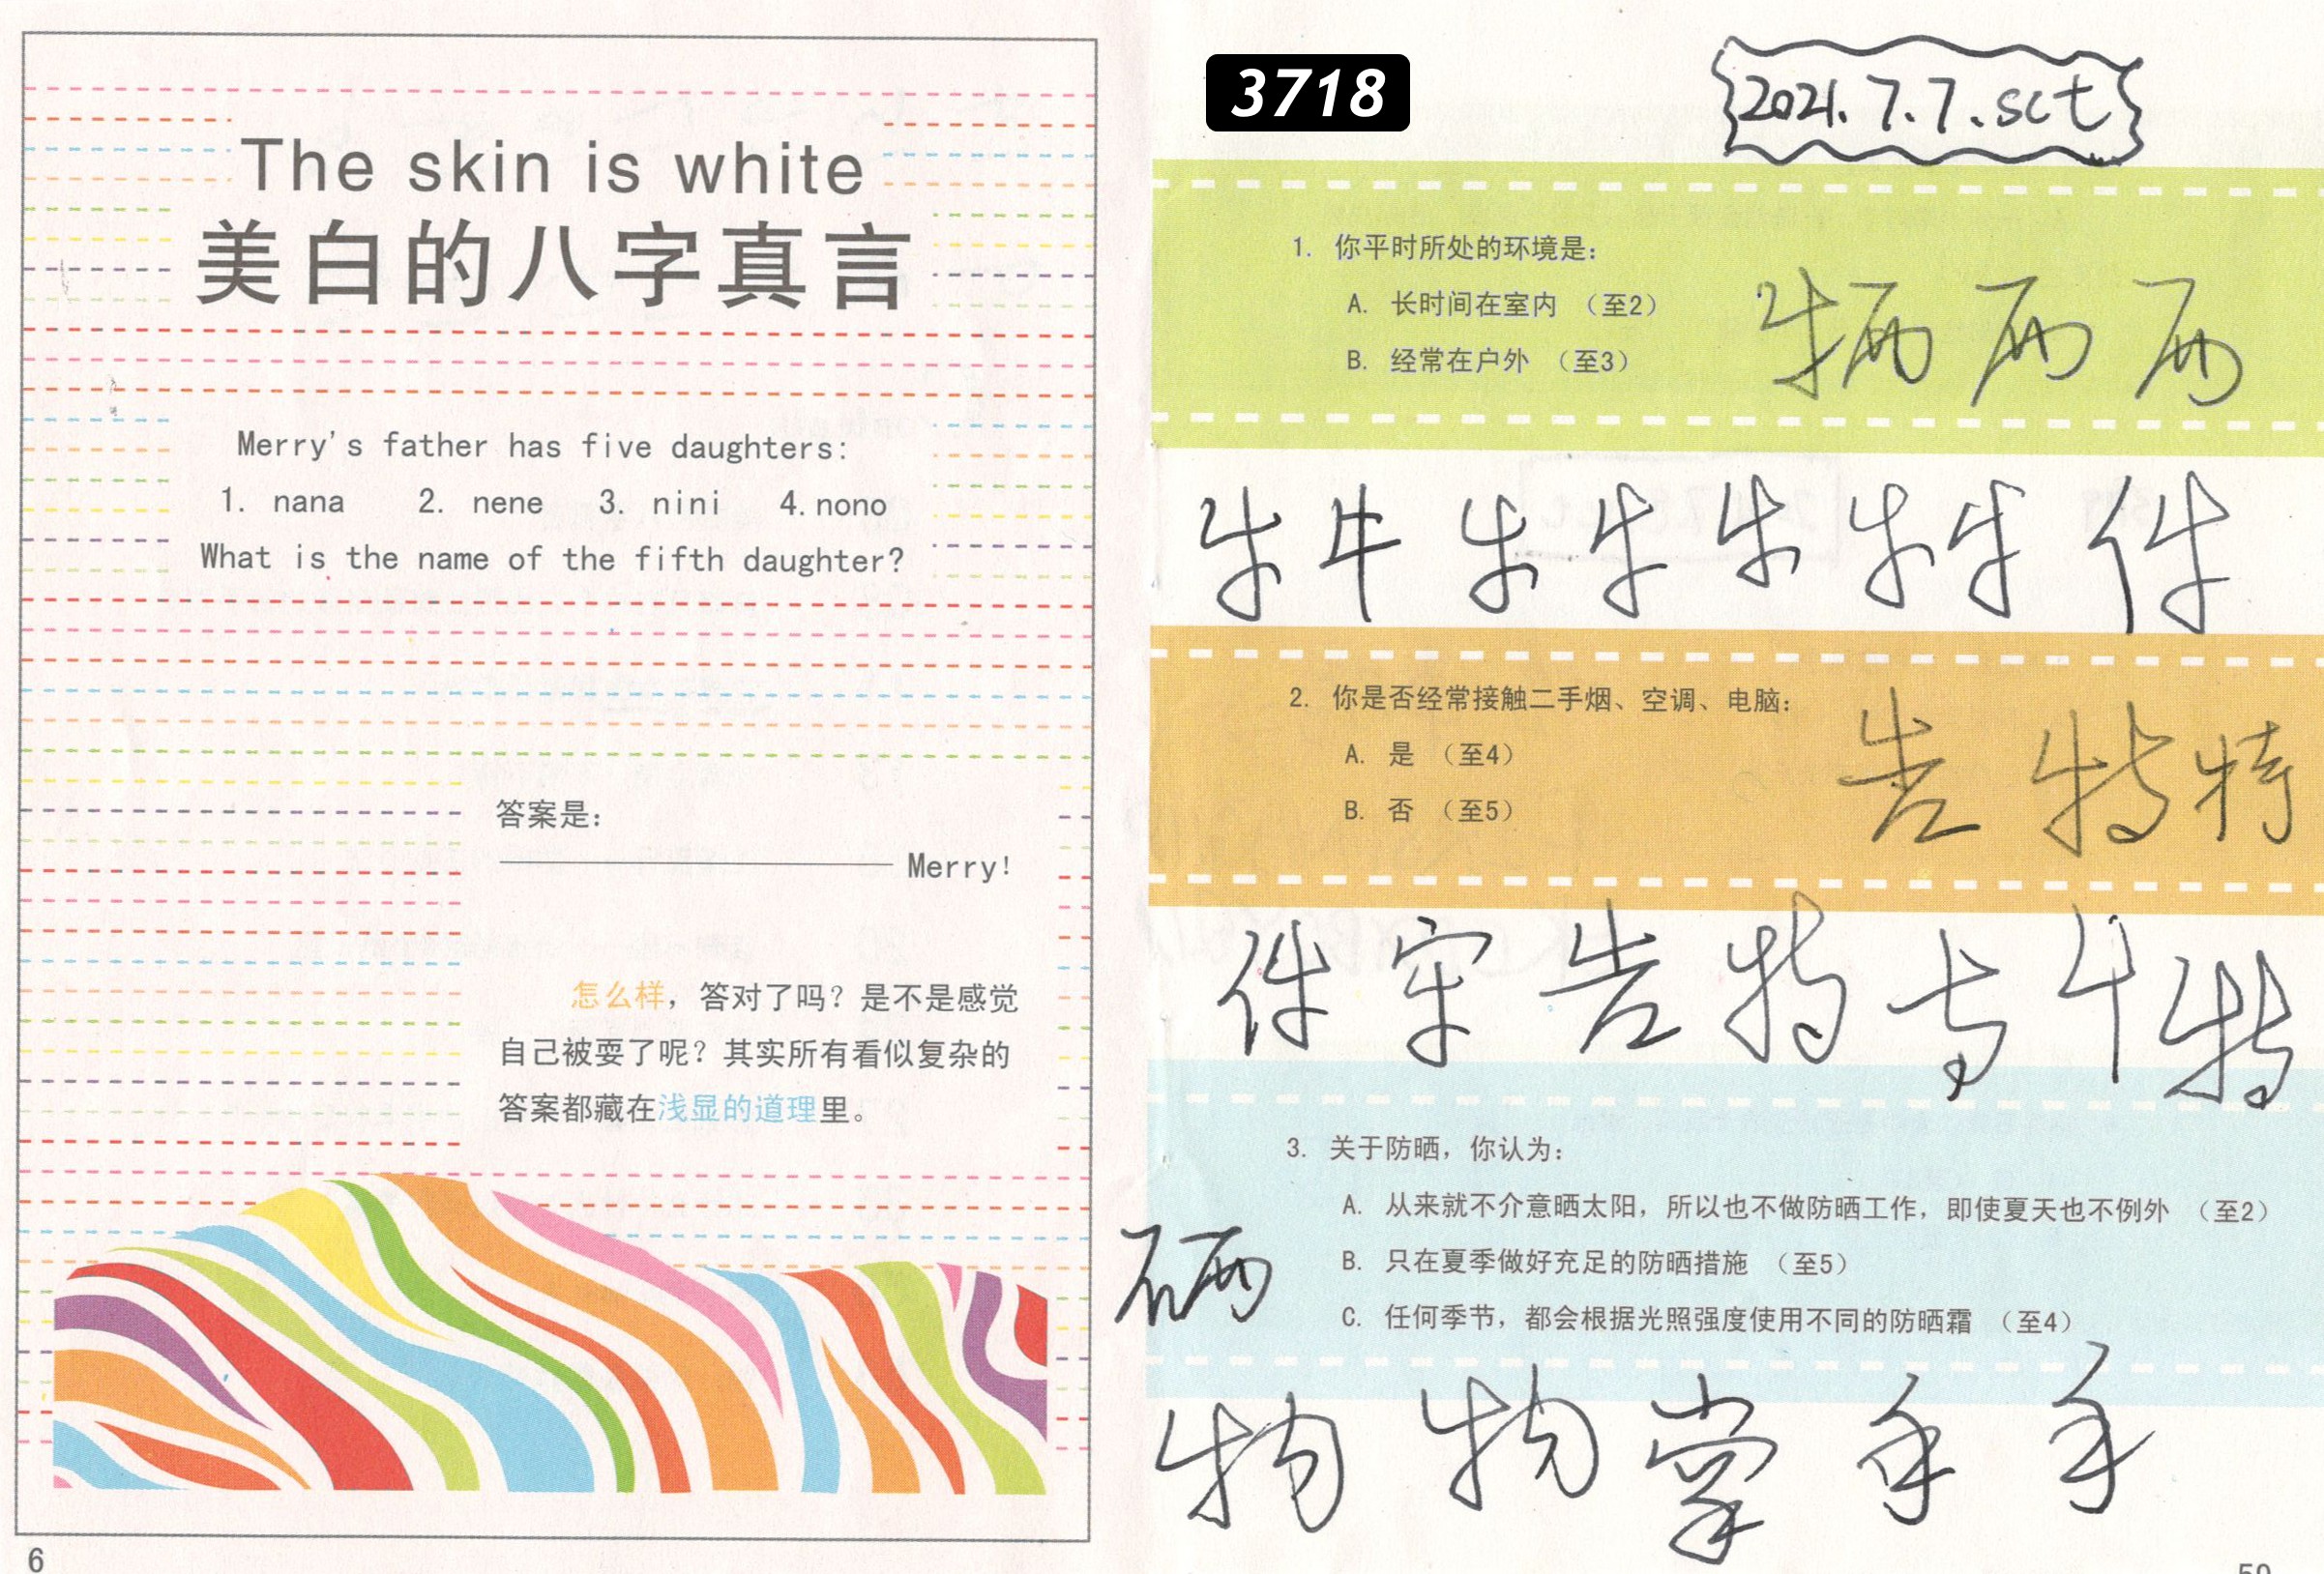 The skin is white
美白的八字真言
Merry's father has five daughters:
1. nana 2. nene 3. nini 4. nono
What is the name of the fifth daughter?
答案是：
Merry!
怎么样，答对了吗？是不是感觉
自己被耍了呢？其实所有看似复杂的
答案都藏在浅显的道理里。
6
3718
2021.7.7.sct
1. 你平时所处的环境是：
A. 长时间在室内 （至2）
B. 经常在户外 （至3）
牛牛牛牛牛牛牛件
2. 你是否经常接触二手烟、空调、电脑：
A. 是 （至4）
B. 否 （至5）
告特特
件牢告特
特
3. 关于防晒，你认为：
A. 从来就不介意晒太阳，所以也不做防晒工作，即使夏天也不例外 （至2）
B. 只在夏季做好充足的防晒措施 （至5）
C. 任何季节，都会根据光照强度使用不同的防晒霜 （至4）
物物掌手手